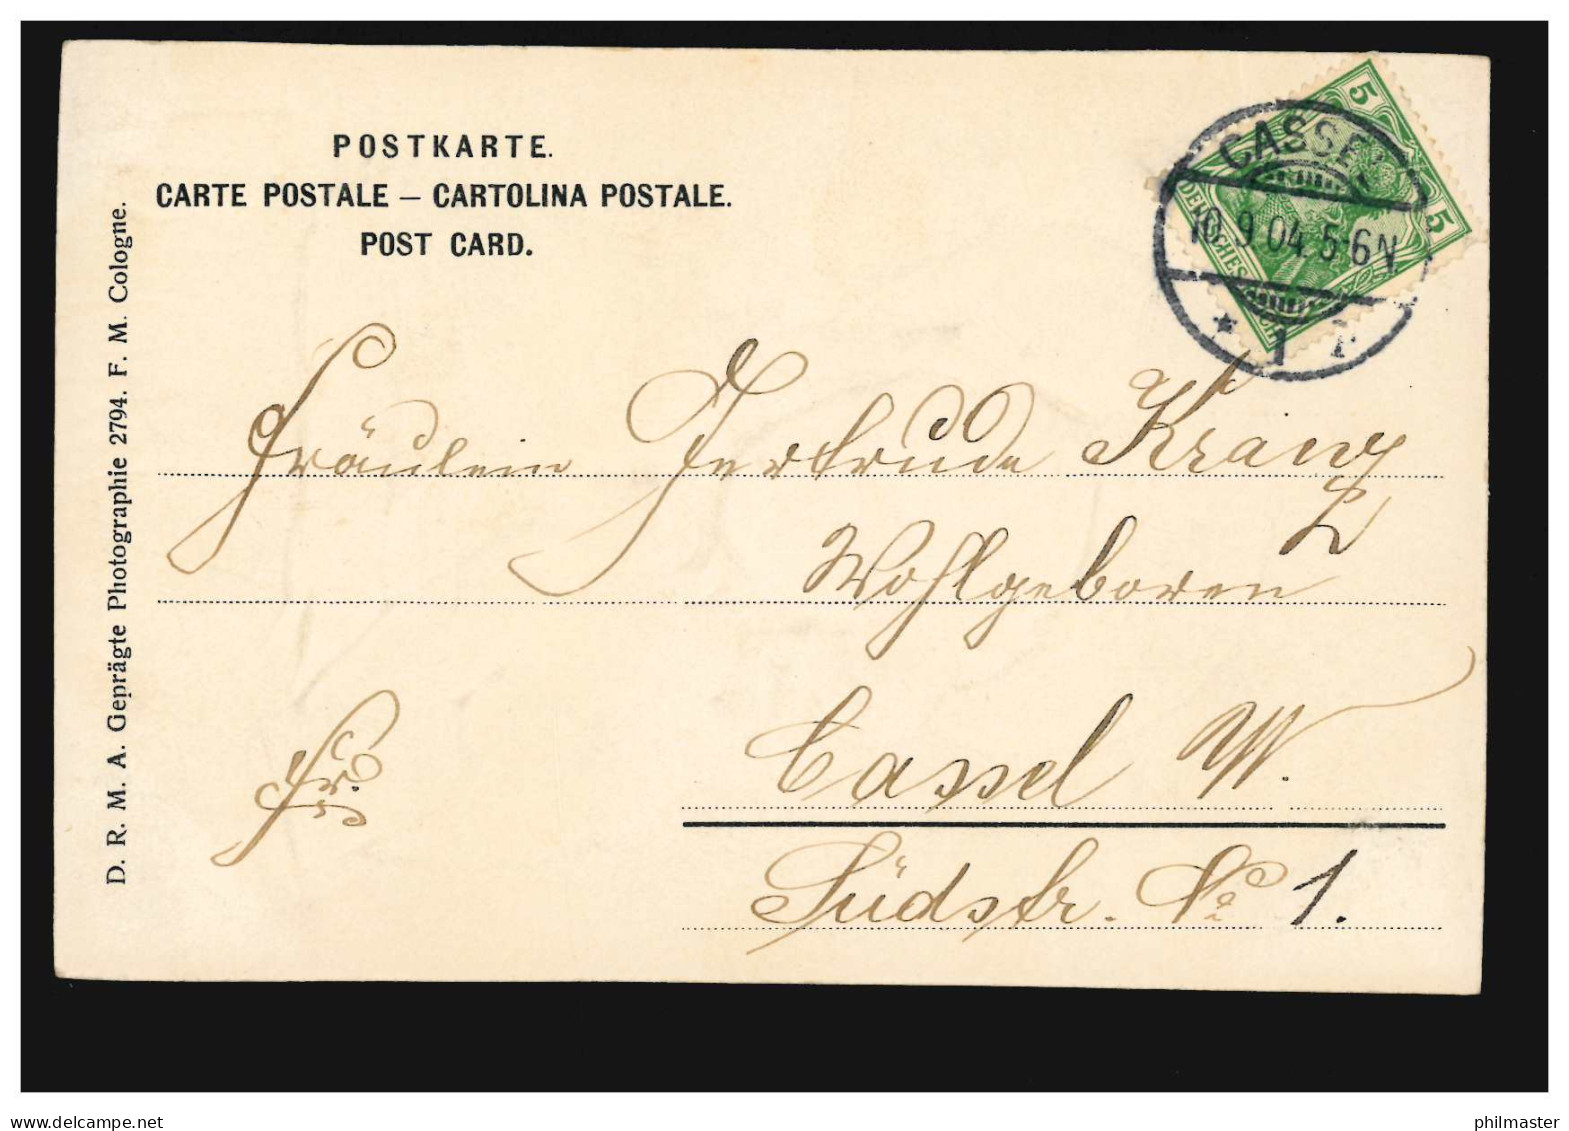 POSTKARTE.
CARTE POSTALE – CARTOLINA POSTALE.
POST CARD.
D. R. M. A. Geprägte Photographie 2794. F. M. Cologne.
CASSEL
10.9.04.5-6N
* 1
5
5
DEUTSCHES REICH
Fräulein Gertrude Kranz
Wohlgeboren
Cassel W.
fr.
Südstr. No 1.
www.delcampe.net
philmaster